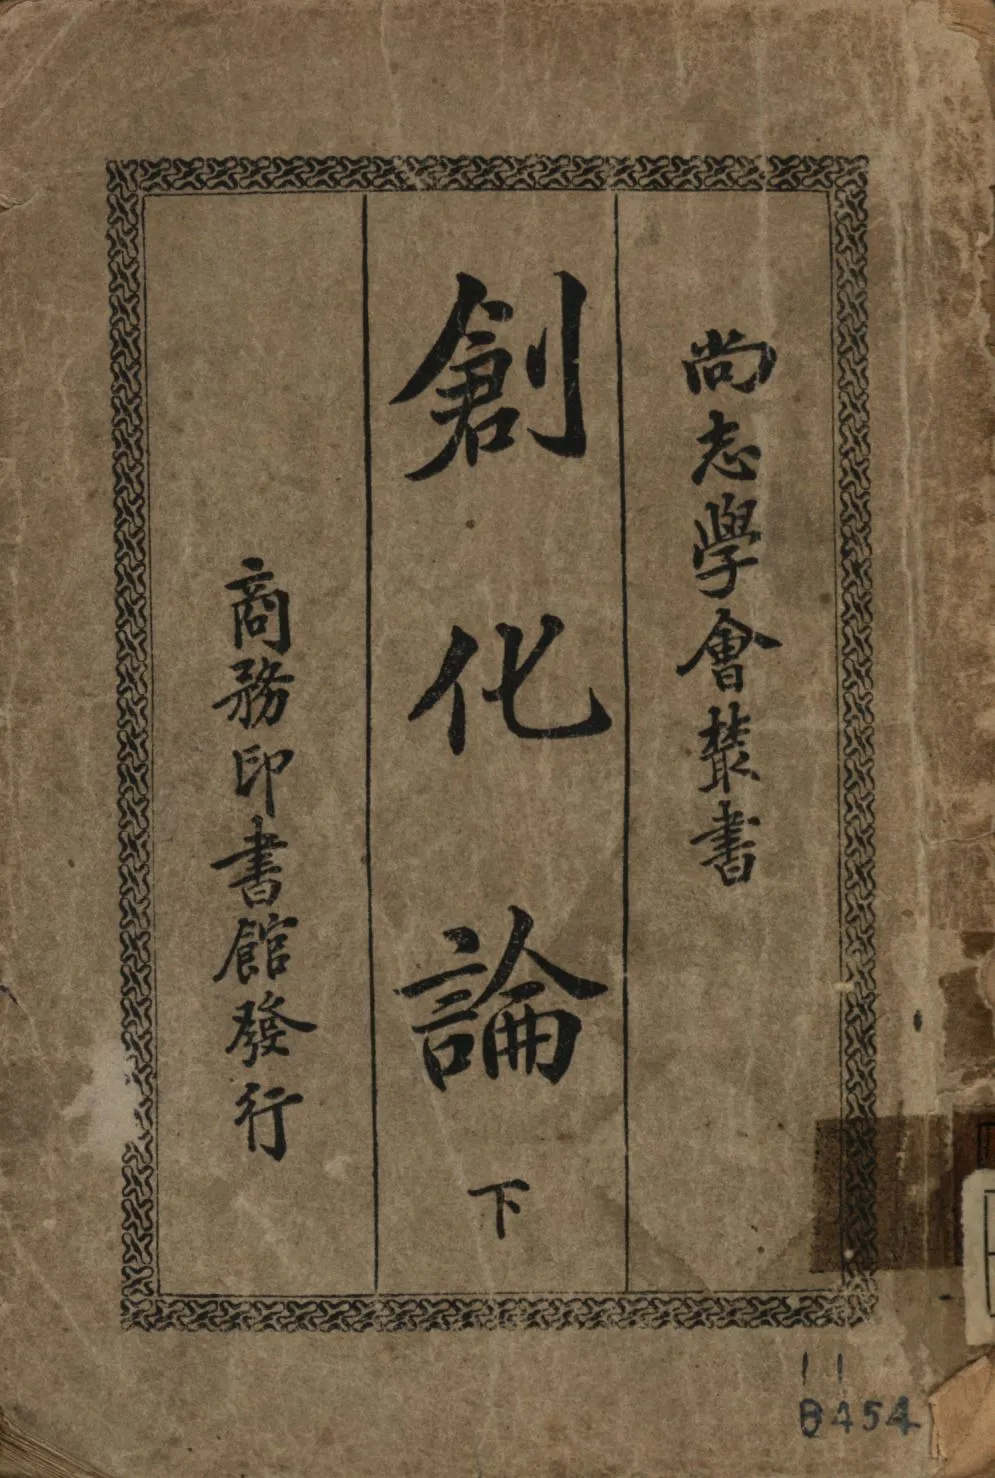 尚志學會叢書
創化論
下
商務印書館發行
11
B454